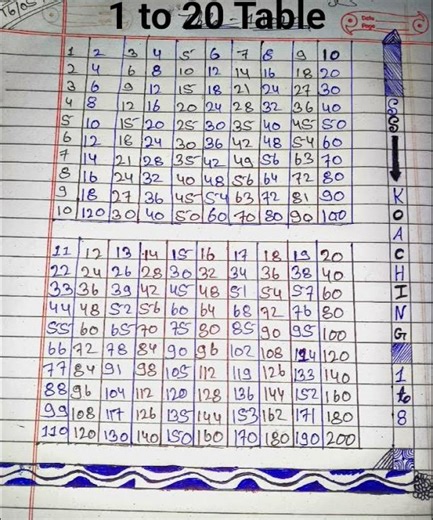 1 to 20 Table
Date
Page
1 2 3 4 5 6 7 8 9 10
2 4 6 8 10 12 14 16 18 20
3 6 9 12 15 18 21 24 27 30
4 8 12 16 20 24 28 32 36 40
5 10 15 20 25 30 35 40 45 50
6 12 18 24 30 36 42 48 54 60
7 14 21 28 35 42 49 56 63 70
8 16 24 32 40 48 56 64 72 80
9 18 27 36 45 54 63 72 81 90
10 120 30 40 50 60 70 80 90 100
11 12 13 14 15 16 17 18 19 20
22 24 26 28 30 32 34 36 38 40
33 36 39 42 45 48 51 54 57 60
44 48 52 56 60 64 68 72 76 80
55 60 65 70 75 80 85 90 95 100
66 72 78 84 90 96 102 108 114 120
77 84 91 98 105 112 119 126 133 140
88 96 104 112 120 128 136 144 152 160
99 108 117 126 135 144 153 162 171 180
110 120 130 140 150 160 170 180 190 200
KOACHING
1 to 8